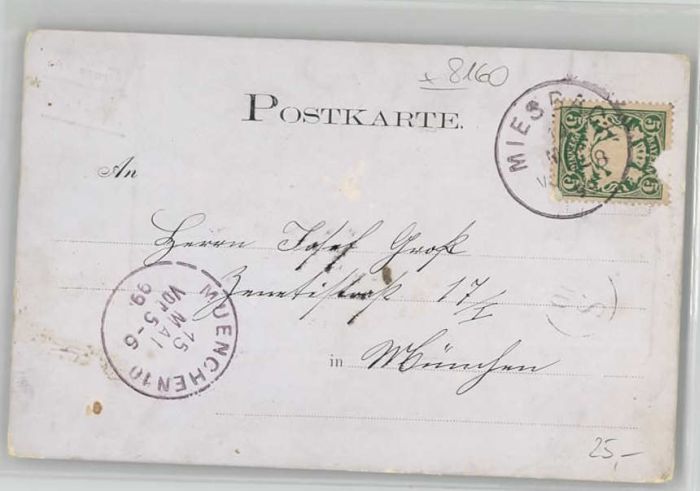 x 8160
POSTKARTE.
MIESBACH
5 5
5 5
An
Herrn Josef Groß
Zenettistraße 17/I
in München
MUENCHEN 10
15
MAI
Vor 5-6
99.
25,-